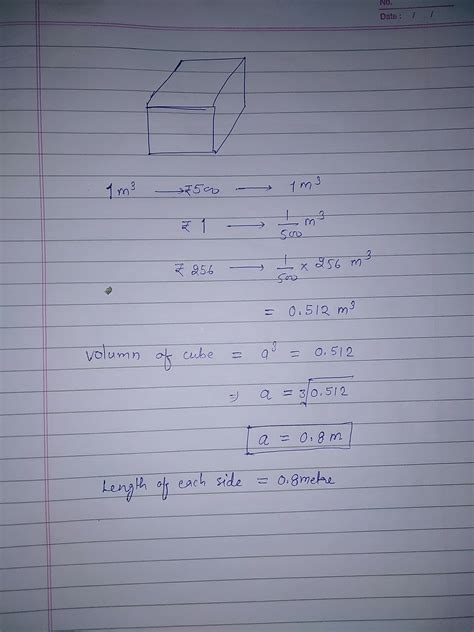 No.
Date : / /
1 m³ → ₹500 → 1 m³
₹ 1 → 1/500 m³
₹ 256 → 1/500 × 256 m³
= 0.512 m³
Volumn of cube = a³ = 0.512
⇒ a = ∛0.512
a = 0.8 m
Length of each side = 0.8 metre